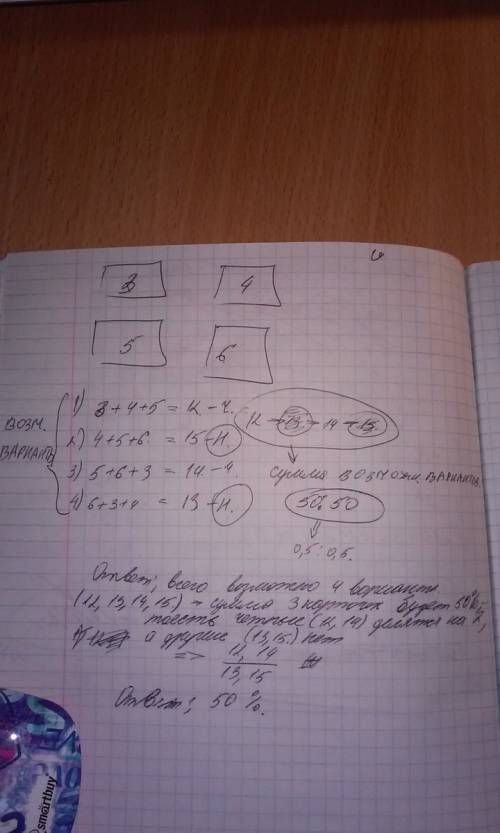 3 4
5 6
возм. варианты
1) 3+4+5 = 12 - ч.
2) 4+5+6 = 15 - н.
3) 5+6+3 = 14 - ч.
4) 6+3+4 = 13 - н.
12 - 13 - 14 - 15
сумма возможн. вариантов.
50:50
0,5:0,5.
Ответ: всего возможно 4 варианта
(12,13,14,15) - сумма 3 карточек будет 50%
тоесть четные (12,14) делятся на 2,
а другие (13,15) нет
=> 12, 14
13, 15
Ответ: 50%.
smartbuy